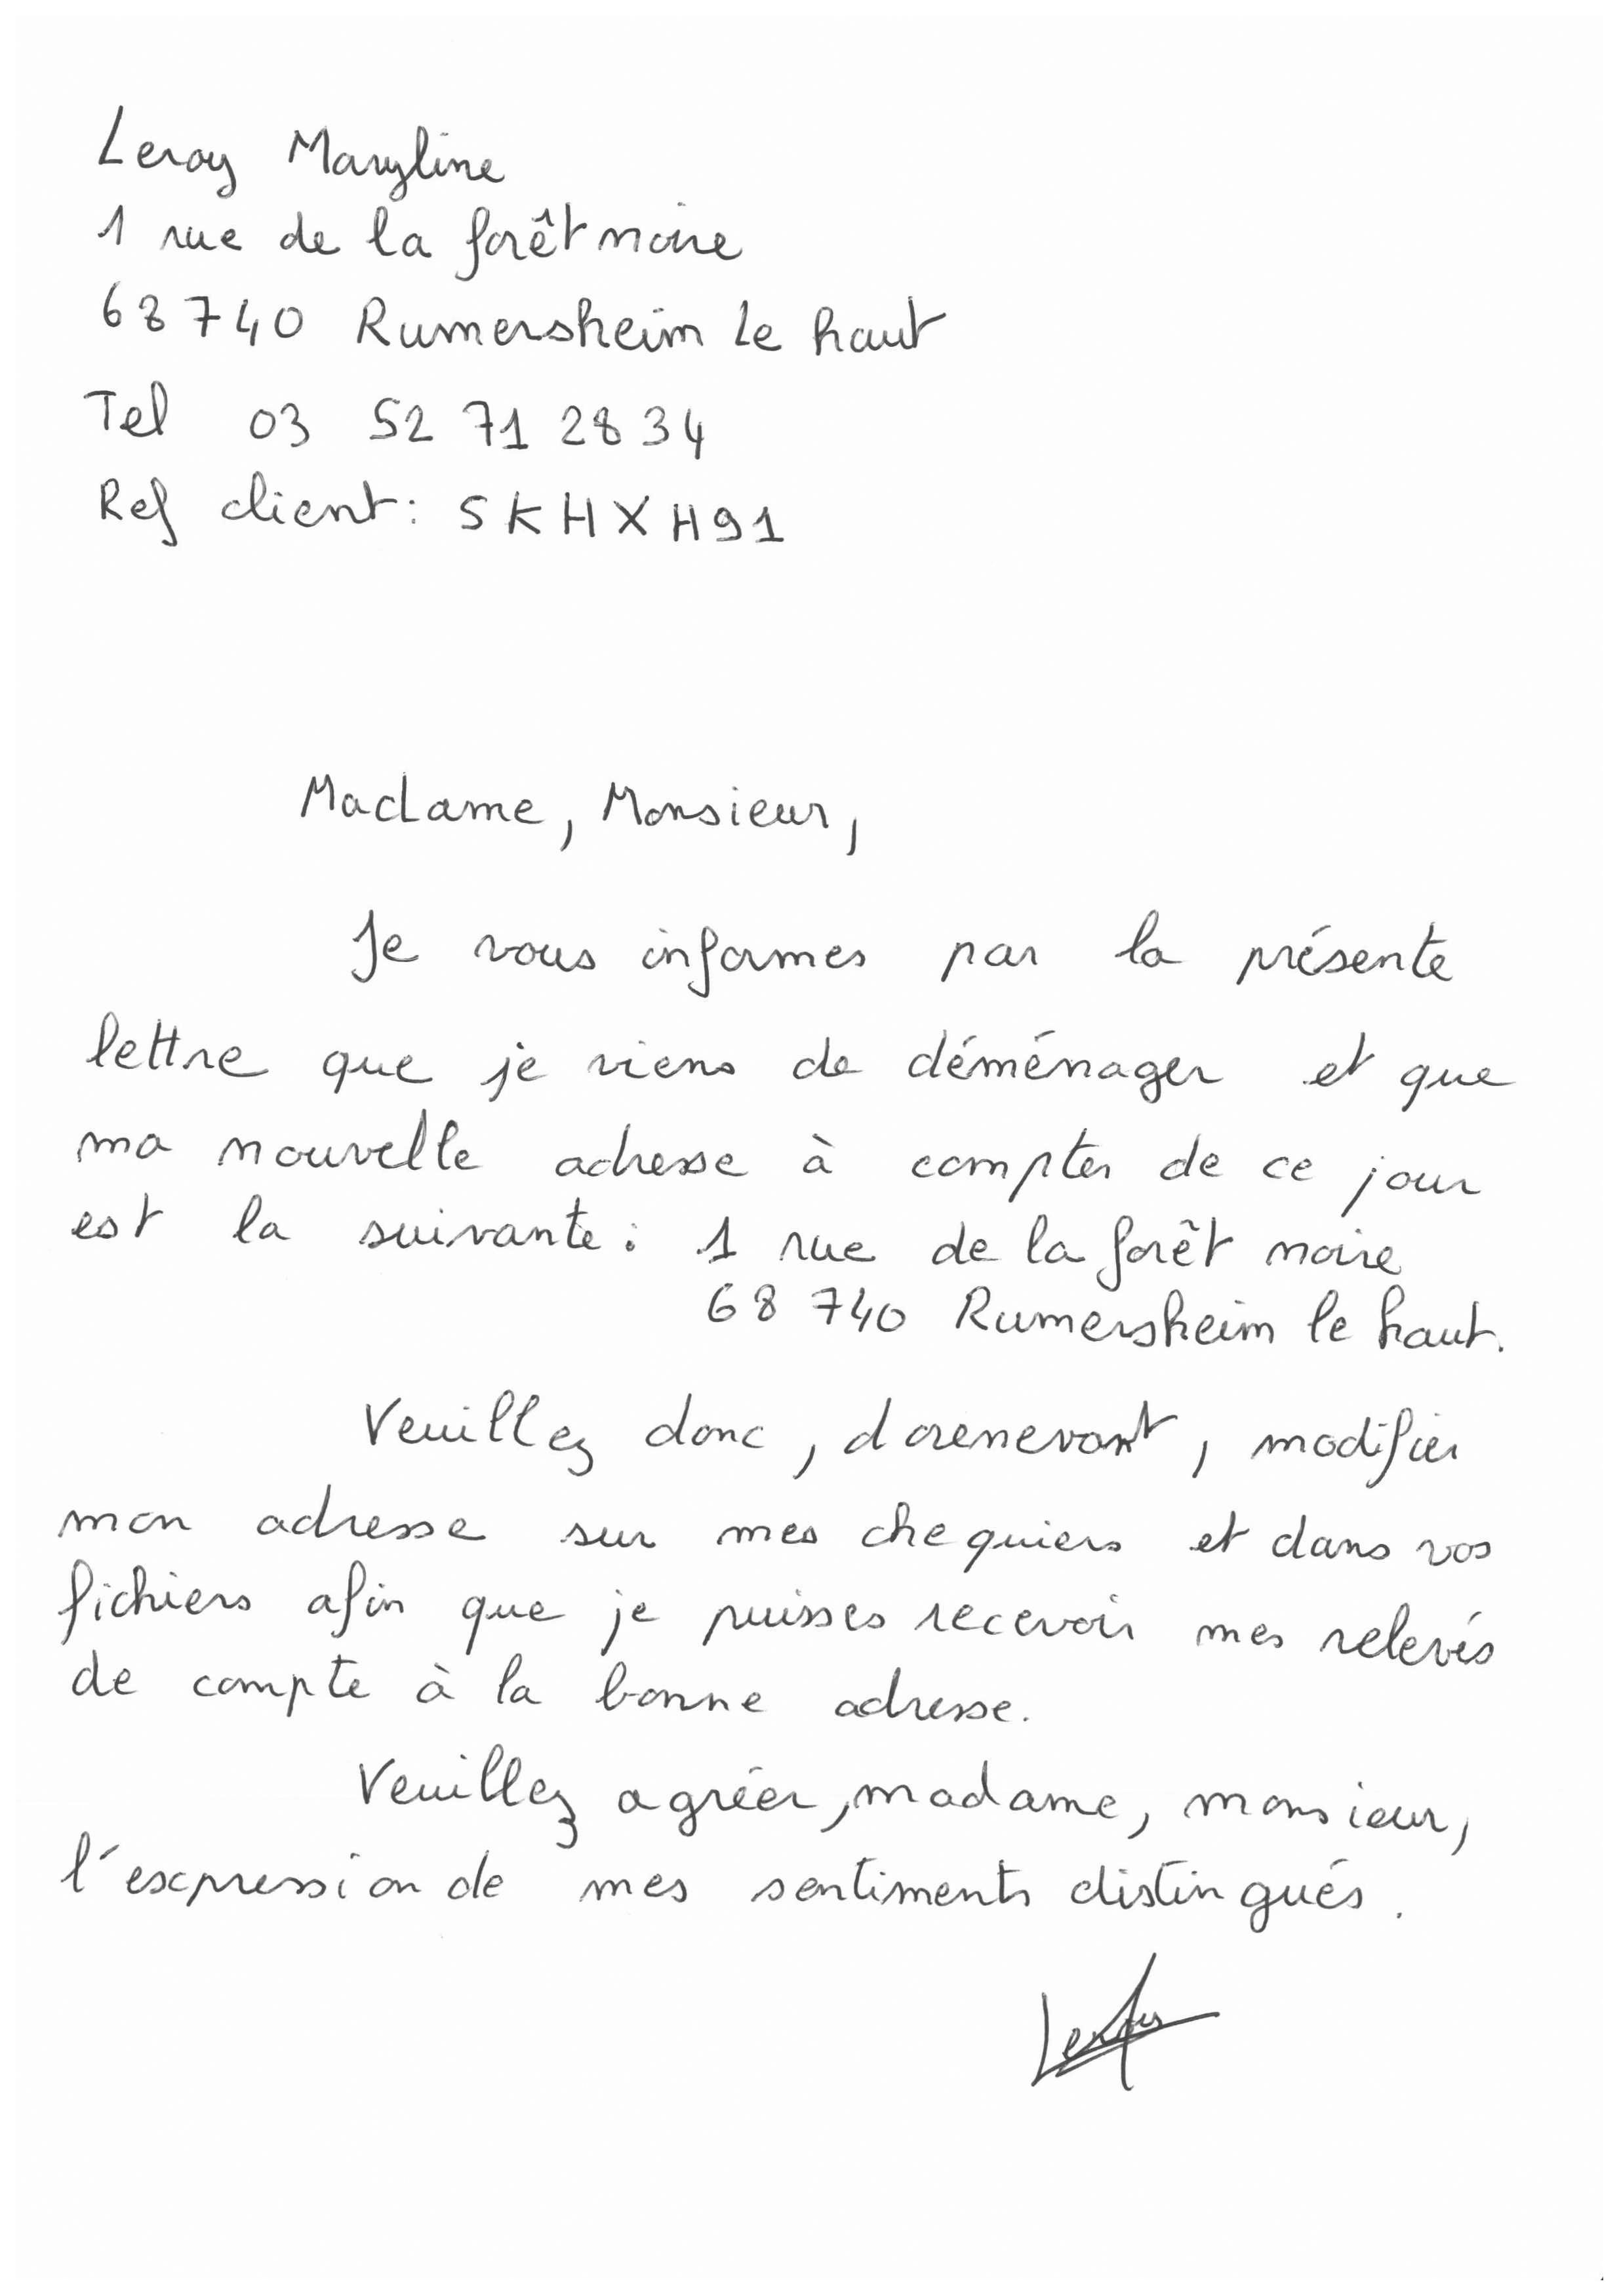 Leroy Maryline
1 rue de la forêt noire
68740 Rumersheim Le haut
Tel 03 52 71 28 34
Ref client : SKHXH91
Madame, Monsieur,
Je vous informes par la présente
lettre que je viens de déménager et que
ma nouvelle adresse à compter de ce jour
est la suivante : 1 rue de la forêt noire
68 740 Rumersheim le haut.
Veuillez donc, dorenevant, modifier
mon adresse sur mes chequiers et dans vos
fichiers afin que je puisses recevoir mes relevés
de compte à la bonne adresse.
Veuillez agréer, madame, monsieur,
l'expression de mes sentiments distingués.
Leroy